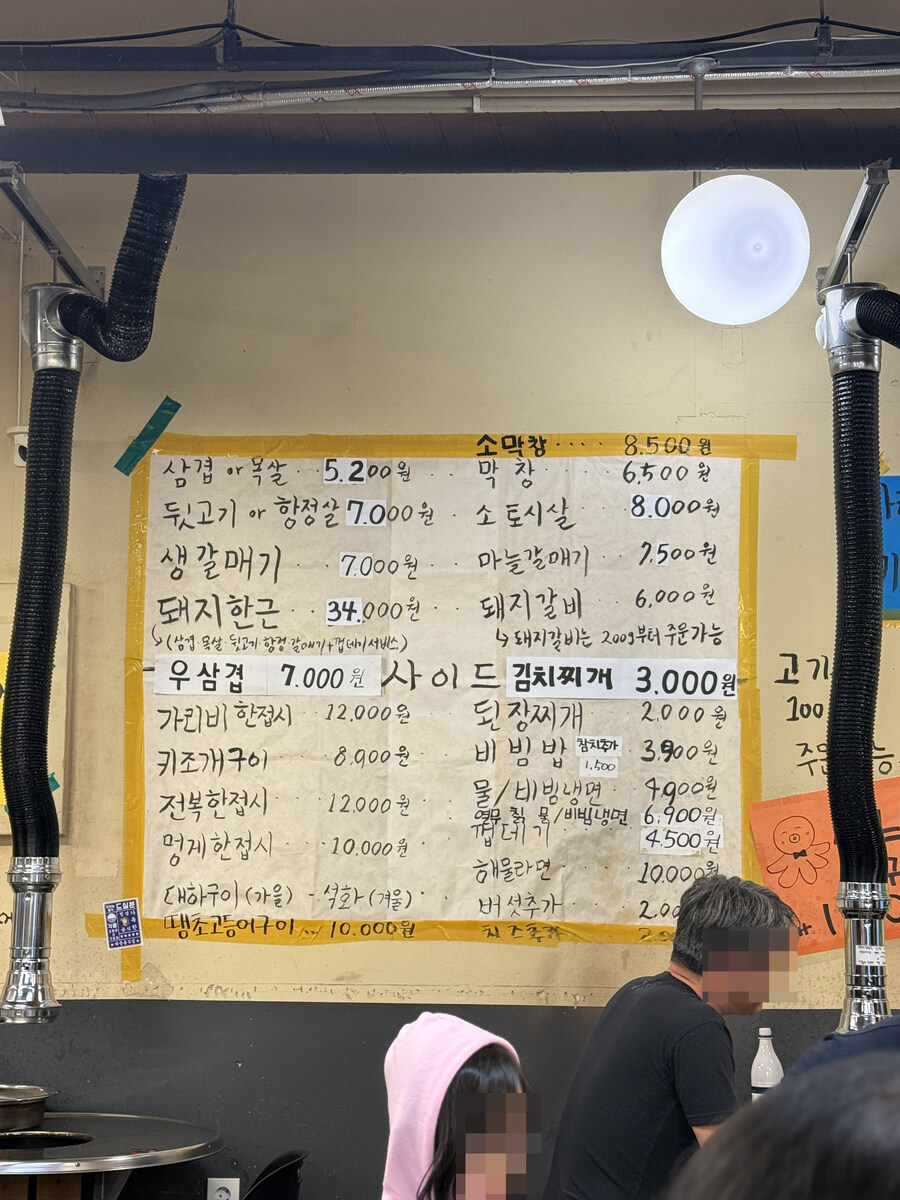 소막창 ···· 8.500원
삼겹 or 목살 ·· 5.200원
막창 ···· 6,500원
뒷고기 or 항정살 7.000원
소토시살 ·· 8.000원
생갈매기 ·· 7.000원
마늘갈매기 ·· 7,500원
돼지한근 ·· 34.000원
돼지갈비 ·· 6,000원
↳(삼겹·목살·뒷고기·항정·갈매기+껍데기서비스)
↳돼지갈비는 200g부터 주문가능
우삼겹 7.000원
사이드
김치찌개 3.000원
가리비 한접시 ·· 12,000원
된장찌개 ·· 2,000원
키조개구이 ·· 8,900원
비빔밥 참치추가 1,500 3,900원
전복한접시 ·· 12,000원
물/비빔냉면 ·· 4,900원
열무, 칡 물/비빔냉면 6,900원
껍데기 4.500원
멍게한접시 ·· 10,000원
해물라면 ·· 10,000원
대하구이 (가을) - 석화 (겨울)
버섯추가 ·· 2,00
땡초고등어구이 ... 10.000원
고기
100